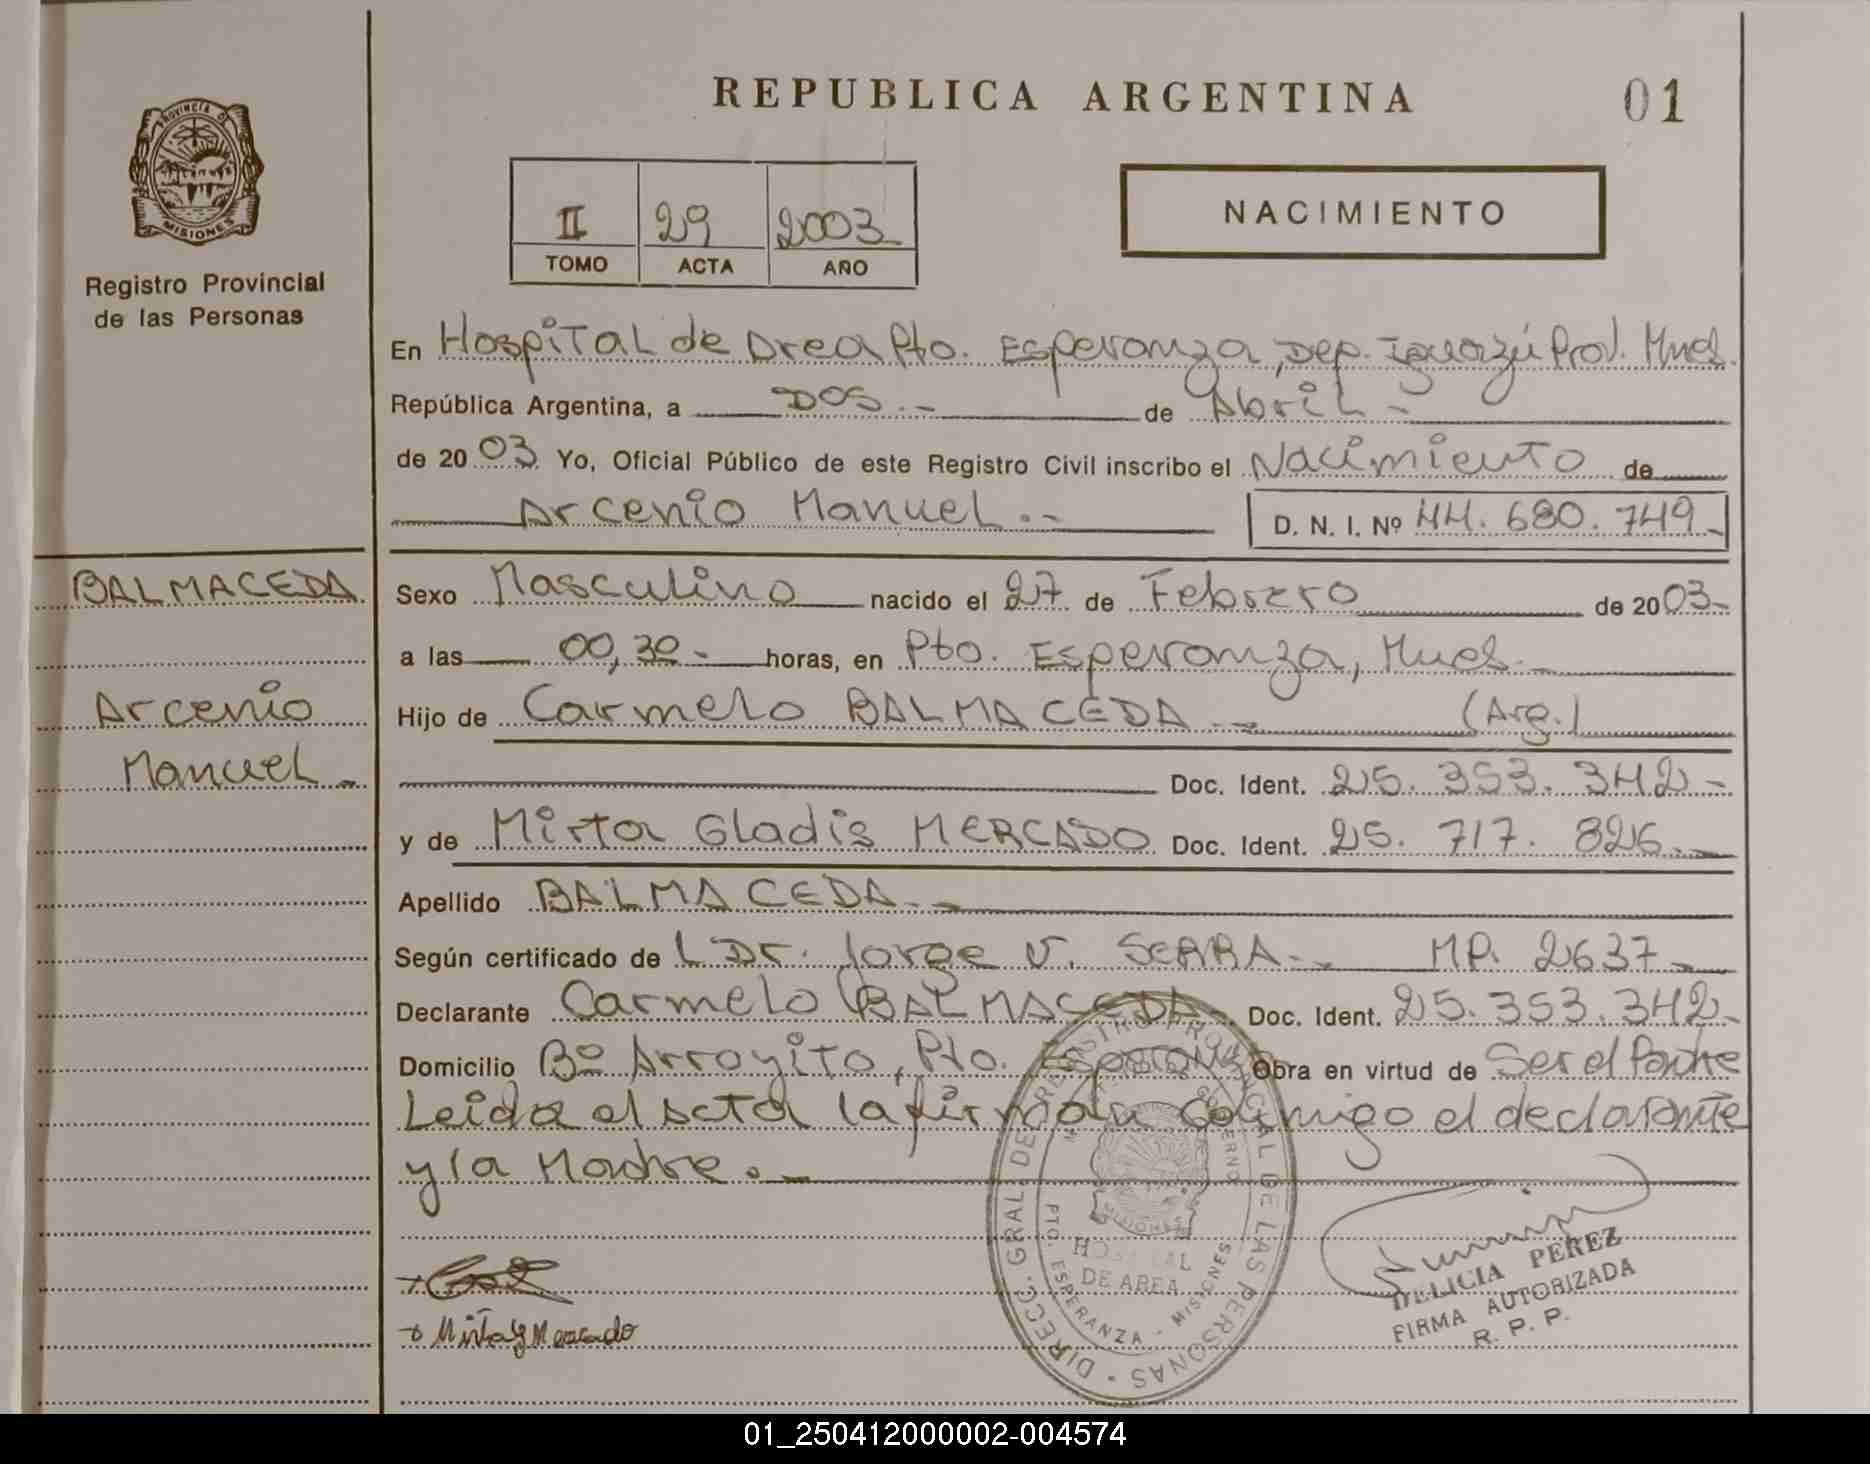 REPUBLICA ARGENTINA
01
PROVINCIA D
MISIONES
Registro Provincial
de las Personas
II 29 2003
TOMO ACTA AÑO
NACIMIENTO
En Hospital de Area Pto. Esperanza, Dep. Iguazú Prov. Mnes.
República Argentina, a DOS.- de Abril-
de 2003 Yo, Oficial Público de este Registro Civil inscribo el Nacimiento de
Arcenio Manuel.-
D. N. I. Nº 44. 680. 749-
BALMACEDA
Arcenio
Manuel-
Sexo Masculino nacido el 27 de Febrero de 2003-
a las 00,30- horas, en Pto. Esperanza, Mnes.-
Hijo de Carmelo BALMACEDA.- (Arg.)
Doc. Ident. 25. 353. 342-
y de Mirta Gladis MERCADO Doc. Ident. 25. 717. 826.-
Apellido BALMACEDA.-
Según certificado de L Dr. Jorge V. SERRA.- MP. 2637-
Declarante Carmelo BALMACEDA- Doc. Ident. 25.353.342-
Domicilio Bº Arroyito, Pto. Esperanza Obra en virtud de Ser el Padre
Leida el acta la firman conmigo el declarante
y la Madre.-
DIRECC. GRAL. DE REGISTRO PROVINCIAL DE LAS PERSONAS
MISIONES
HOSPITAL
DE AREA
PTO. ESPERANZA - MISIONES
Mirta G Mercado
DELICIA PEREZ
FIRMA AUTORIZADA
R. P. P.
01_250412000002-004574